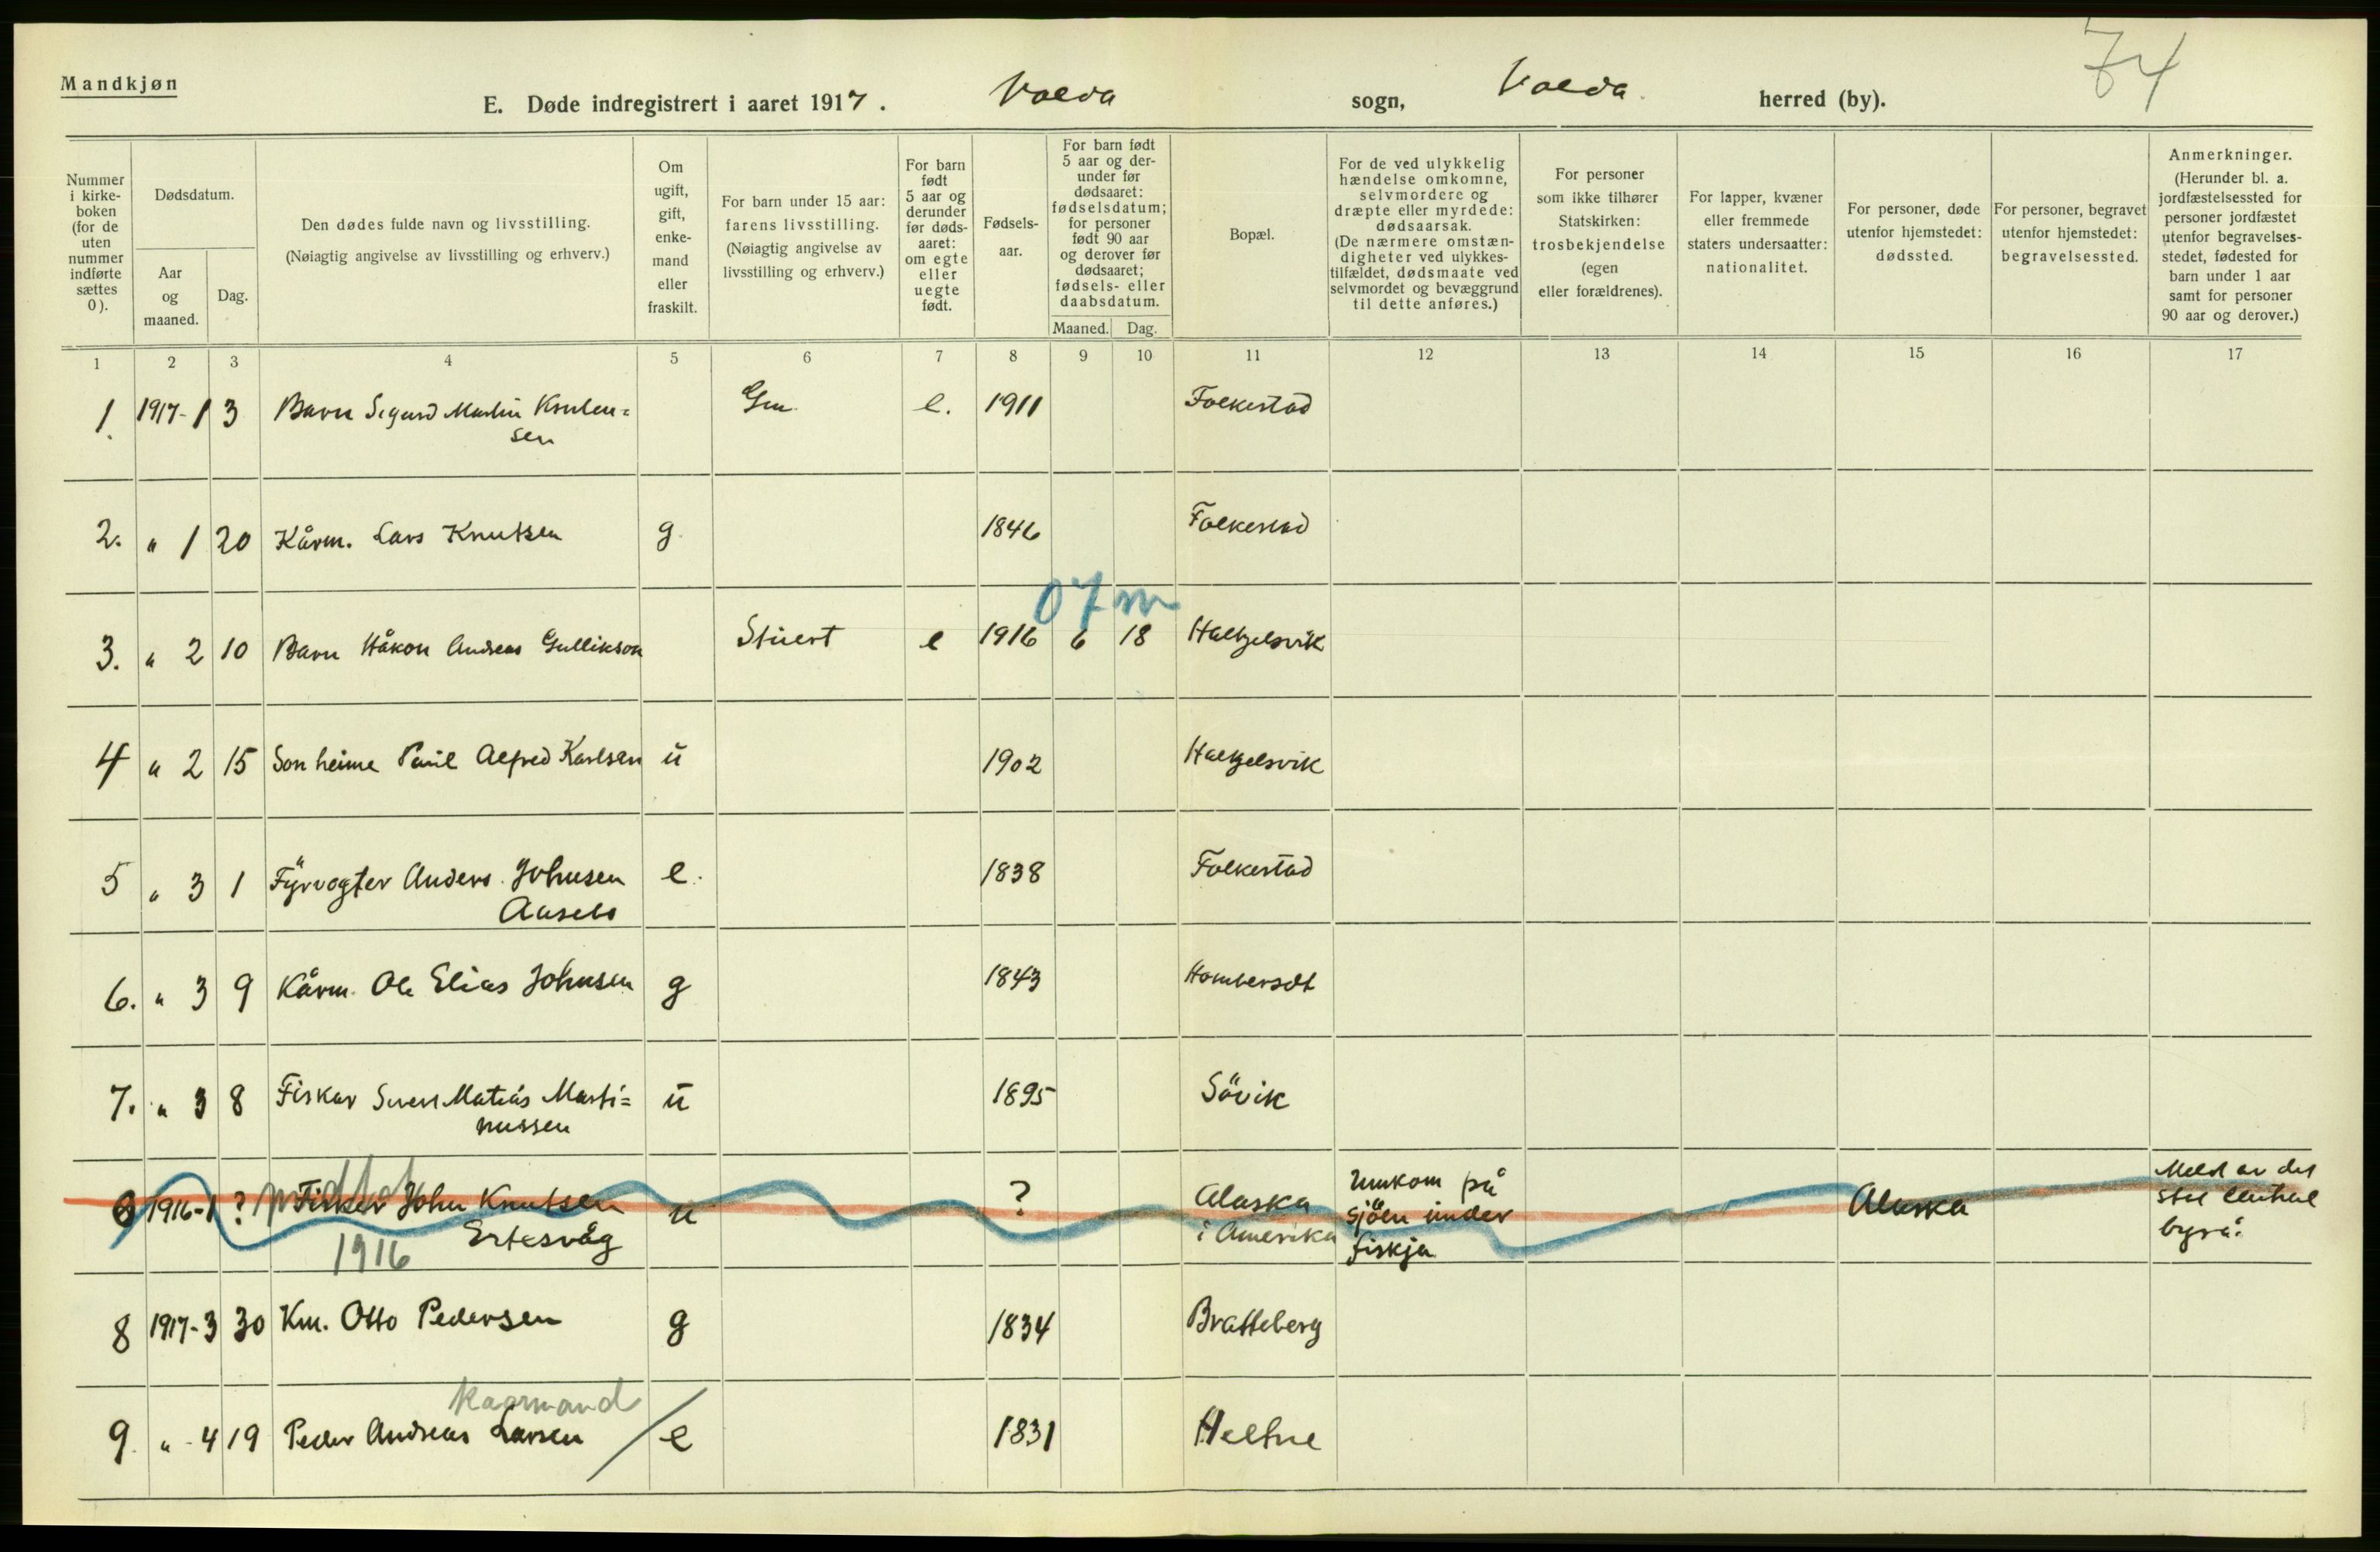 74
Mandkjøn
E. Døde indregistrert i aaret 1917. Volda sogn, Volda herred (by).
Nummer i kirke-boken (for de uten nummer indførte sættes 0).
Dødsdatum.
Aar og maaned.
Dag.
Den dødes fulde navn og livsstilling.
(Nøiagtig angivelse av livsstilling og erhverv.)
Om ugift, gift, enke-mand eller fraskilt.
For barn under 15 aar: farens livsstilling.
(Nøiagtig angivelse av livsstilling og erhverv.)
For barn født 5 aar og derunder før døds-aaret: om egte eller uegte født.
Fødsels-aar.
For barn født 5 aar og der-under før dødsaaret: fødselsdatum; for personer født 90 aar og derover før dødsaaret; fødsels- eller daabsdatum.
Maaned. Dag.
Bopæl.
For de ved ulykkelig hændelse omkomne, selvmordere og dræpte eller myrdede: dødsaarsak.
(De nærmere omstæn-digheter ved ulykkes-tilfældet, dødsmaate ved selvmordet og bevæggrund til dette anføres.)
For personer som ikke tilhører Statskirken: trosbekjendelse (egen eller forældrenes).
For lapper, kvæner eller fremmede staters undersaatter: nationalitet.
For personer, døde utenfor hjemstedet: dødssted.
For personer, begravet utenfor hjemstedet: begravelsessted.
Anmerkninger.
(Herunder bl. a. jordfæstelsessted for personer jordfæstet utenfor begravelses-stedet, fødested for barn under 1 aar samt for personer 90 aar og derover.)
1 2 3 4 5 6 7 8 9 10 11 12 13 14 15 16 17
1. 1917-1 3 Barn Sigurd Martin Knuten= Gm. e. 1911 Folkestad
sen
2. " 1 20 Kårm. Lars Knutsen g. 1846 Folkestad
07m
3. " 2 10 Barn Håkon Andreas Gullikson Stuert e 1916 6 18 Halkjelsvik
4 " 2 15 Son heime Paul Alfred Karlsen u 1902 Halkjelsvik
5 " 3 1 Fyrvogter Anders Johnsen e. 1838 Folkestad
Aasebø
6. " 3 9 Kårm. Ole Elias Johnsen g 1843
7. " 3 8 Fiskar Matias Marti= u 1895 Sövik
nussen
0 1916-1 ? Fisker John Knutsen u ? Alaska Umkom på Alaska Meld av det
Ertesvåg i Amerika sjöen under stat. central
1916 fiskja byrå.
8 1917-3 30 Km. Otto Pedersen g 1834 Bratteberg
kaarmand
9. " -4 19 Peder Andreas Larsen / e 1831 Heltne